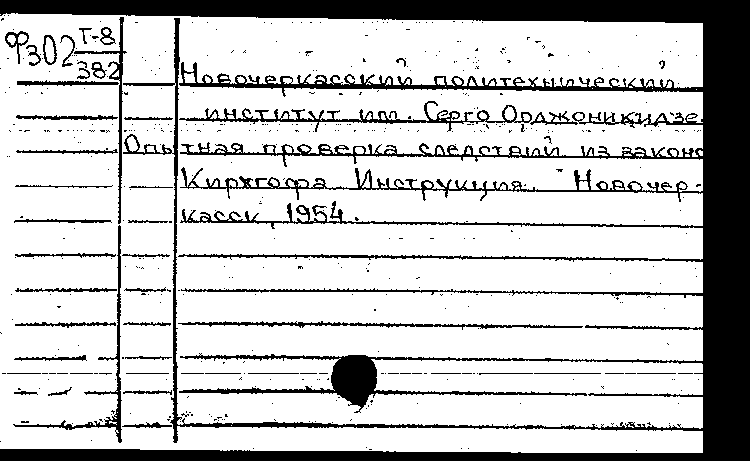 Фз02 Т-8
382
Новочеркасский политехнический
институт им. Серго Орджоникидзе.
Опытная проверка следствий из законо
Кирхгофа Инструкция. Новочер-
касск, 1954.